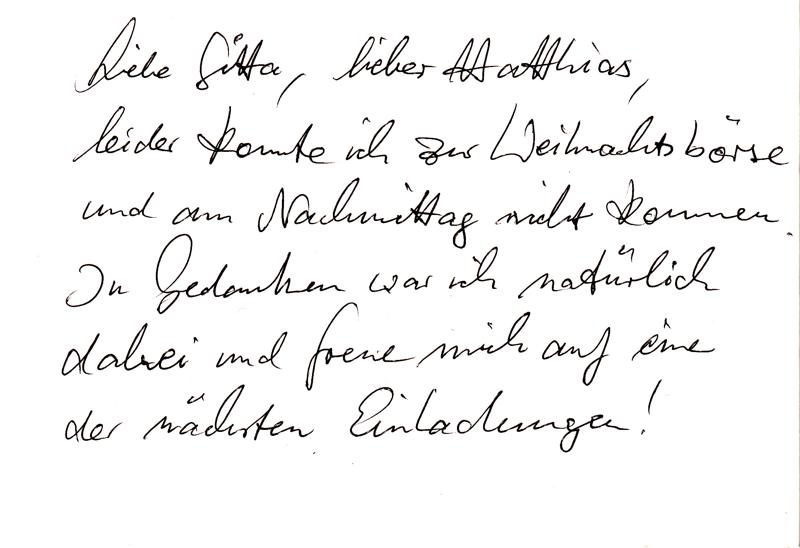 Liebe Gitta, lieber Matthias,
leider konnte ich zur Weihnachtsbörse
und am Nachmittag nicht kommen.
In Gedanken war ich natürlich
dabei und freue mich auf eine
der nächsten Einladungen!